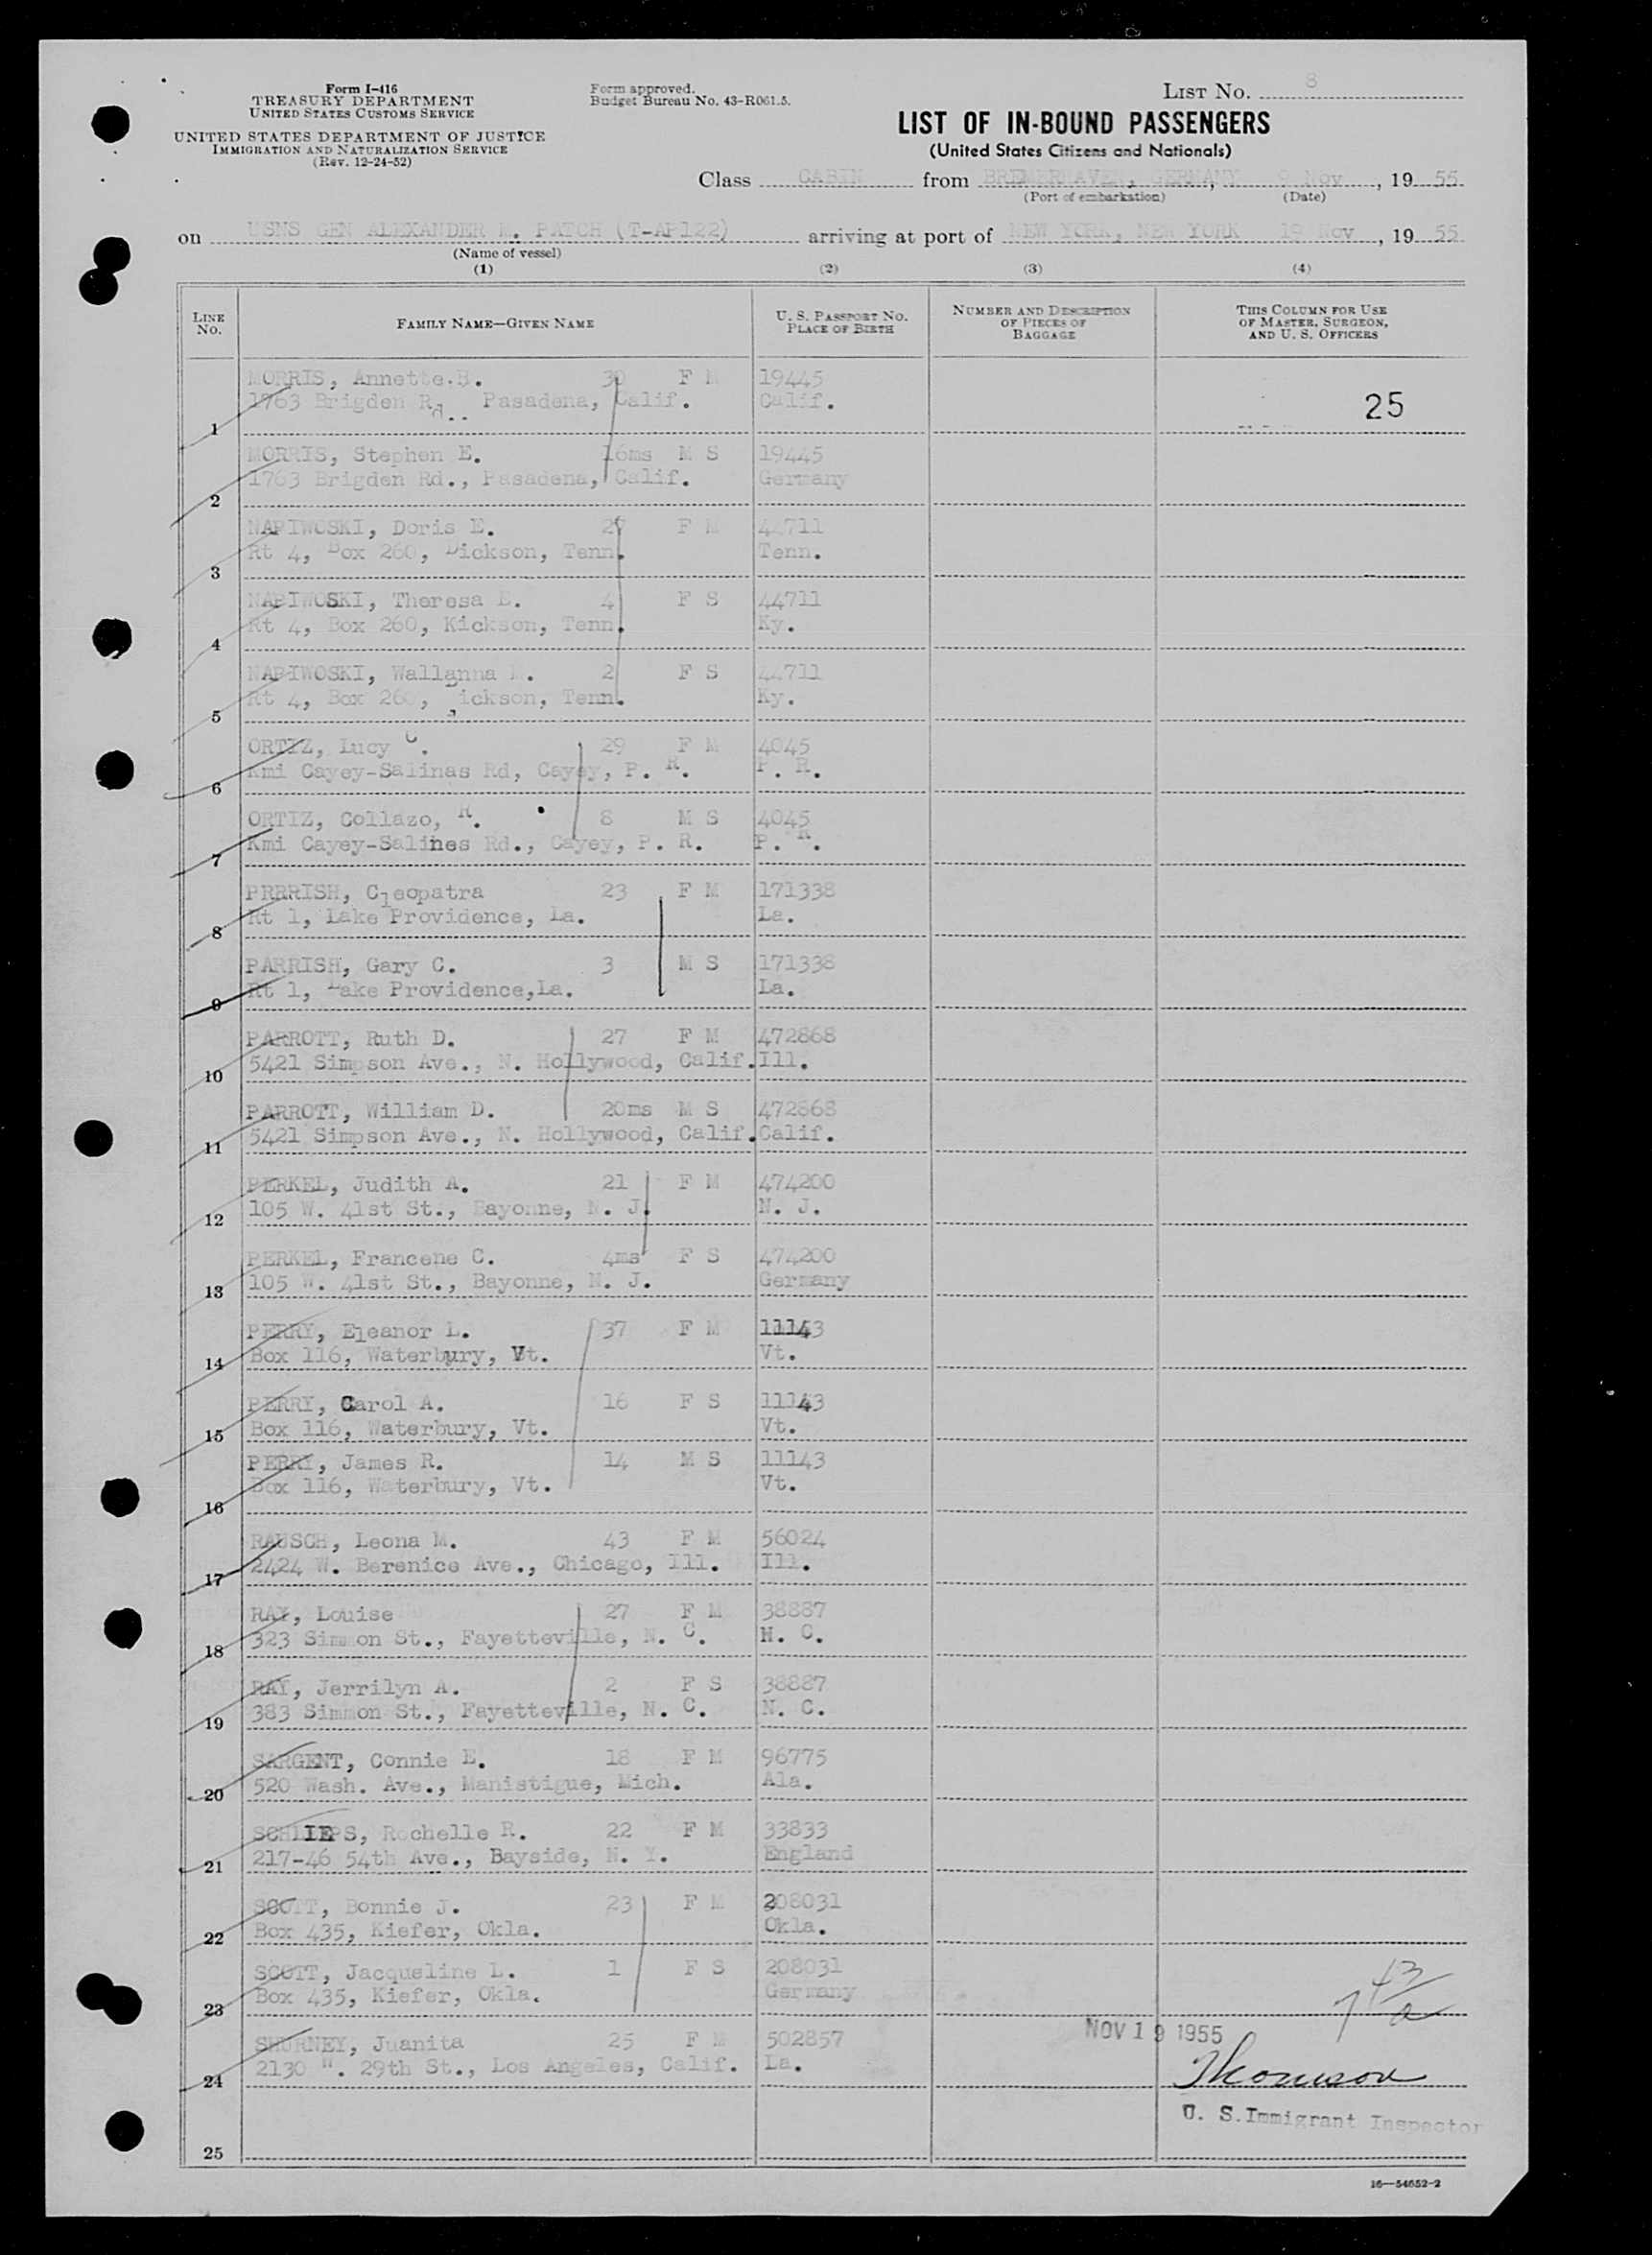 Form I-416
TREASURY DEPARTMENT
UNITED STATES CUSTOMS SERVICE
UNITED STATES DEPARTMENT OF JUSTICE
IMMIGRATION AND NATURALIZATION SERVICE
(Rev. 12-24-52)
Form approved.
Budget Bureau No. 43-R061.5.
LIST NO. 8
LIST OF IN-BOUND PASSENGERS
(United States Citizens and Nationals)
Class CABIN from BREMERHAVEN, GERMANY, 9 Nov, 19 55
(Port of embarkation) (Date)
on USNS GEN ALEXANDER M. PATCH (T-AP122) arriving at port of NEW YORK, NEW YORK 19 Nov, 19 55
(Name of vessel)
(1) (2) (3) (4)
LINE NO. FAMILY NAME—GIVEN NAME U. S. PASSPORT NO. PLACE OF BIRTH NUMBER AND DESCRIPTION OF PIECES OF BAGGAGE THIS COLUMN FOR USE OF MASTER, SURGEON, AND U. S. OFFICERS
MORRIS, Annette.B. 30 F M 19445
1763 Brigden Rd.. Pasadena, Calif. Calif. 25
1
MORRIS, Stephen E. 16ms M S 19445
1763 Brigden Rd., Pasadena, Calif. Germany
2
NAPIWOSKI, Doris E. 27 F M 44711
Rt 4, Box 260, Dickson, Tenn. Tenn.
3
NAPIWOSKI, Theresa E. 4 F S 44711
Rt 4, Box 260, Kickson, Tenn. Ky.
4
NAPIWOSKI, Wallanna 2 F S 44711
Rt 4, Box 260, ickson, Tenn. Ky.
5
ORTIZ, Lucy C. 29 F M 4045
Kmi Cayey-Salinas Rd, Cayey, P. R. P. R.
6
ORTIZ, Collazo, R. 8 M S 4045
Kmi Cayey-Salines Rd., Cayey, P. R. P. R.
7
PRRRISH, Cleopatra 23 F M 171338
Rt 1, Lake Providence, La. La.
8
PARRISH, Gary C. 3 M S 171338
Rt 1, Lake Providence,La. La.
9
PARROTT, Ruth D. 27 F M 472868
5421 Simpson Ave., N. Hollywood, Calif. Ill.
10
PARROTT, William D. 20ms M S 472868
5421 Simpson Ave., N. Hollywood, Calif. Calif.
11
PERKEL, Judith A. 21 F M 474200
105 W. 41st St., Bayonne, N. J. N. J.
12
PERKEL, Francene C. 4ms F S 474200
105 W. 41st St., Bayonne, N. J. Germany
13
PERRY, Eleanor L. 37 F M 11143
Box 116, Waterbury, Vt. Vt.
14
PERRY, Carol A. 16 F S 11143
Box 116, Waterbury, Vt. Vt.
15
PERRY, James R. 14 M S 11143
Box 116, Waterbury, Vt. Vt.
16
RAUSCH, Leona M. 43 F M 56024
2424 W. Berenice Ave., Chicago, Ill. Ill.
17
RAY, Louise 27 F M 38887
323 Simmon St., Fayetteville, N. C. N. C.
18
RAY, Jerrilyn A. 2 F S 38887
383 Simmon St., Fayetteville, N. C. N. C.
19
SARGENT, Connie E. 18 F M 96775
520 Wash. Ave., Manistigue, Mich. Ala.
20
SCHLIEPS, Rochelle R. 22 F M 33833
217-46 54th Ave., Bayside, N. Y. England
21
SCOTT, Bonnie J. 23 F M 208031
Box 435, Kiefer, Okla. Okla.
22
SCOTT, Jacqueline L. 1 F S 208031
Box 435, Kiefer, Okla. Germany
23
NOV 19 1955
SHURNEY, Juanita 25 F M 502857
2130 W. 29th St., Los Angeles, Calif. La.
24 Thomson
U. S. Immigrant Inspector
25
16—54652-2